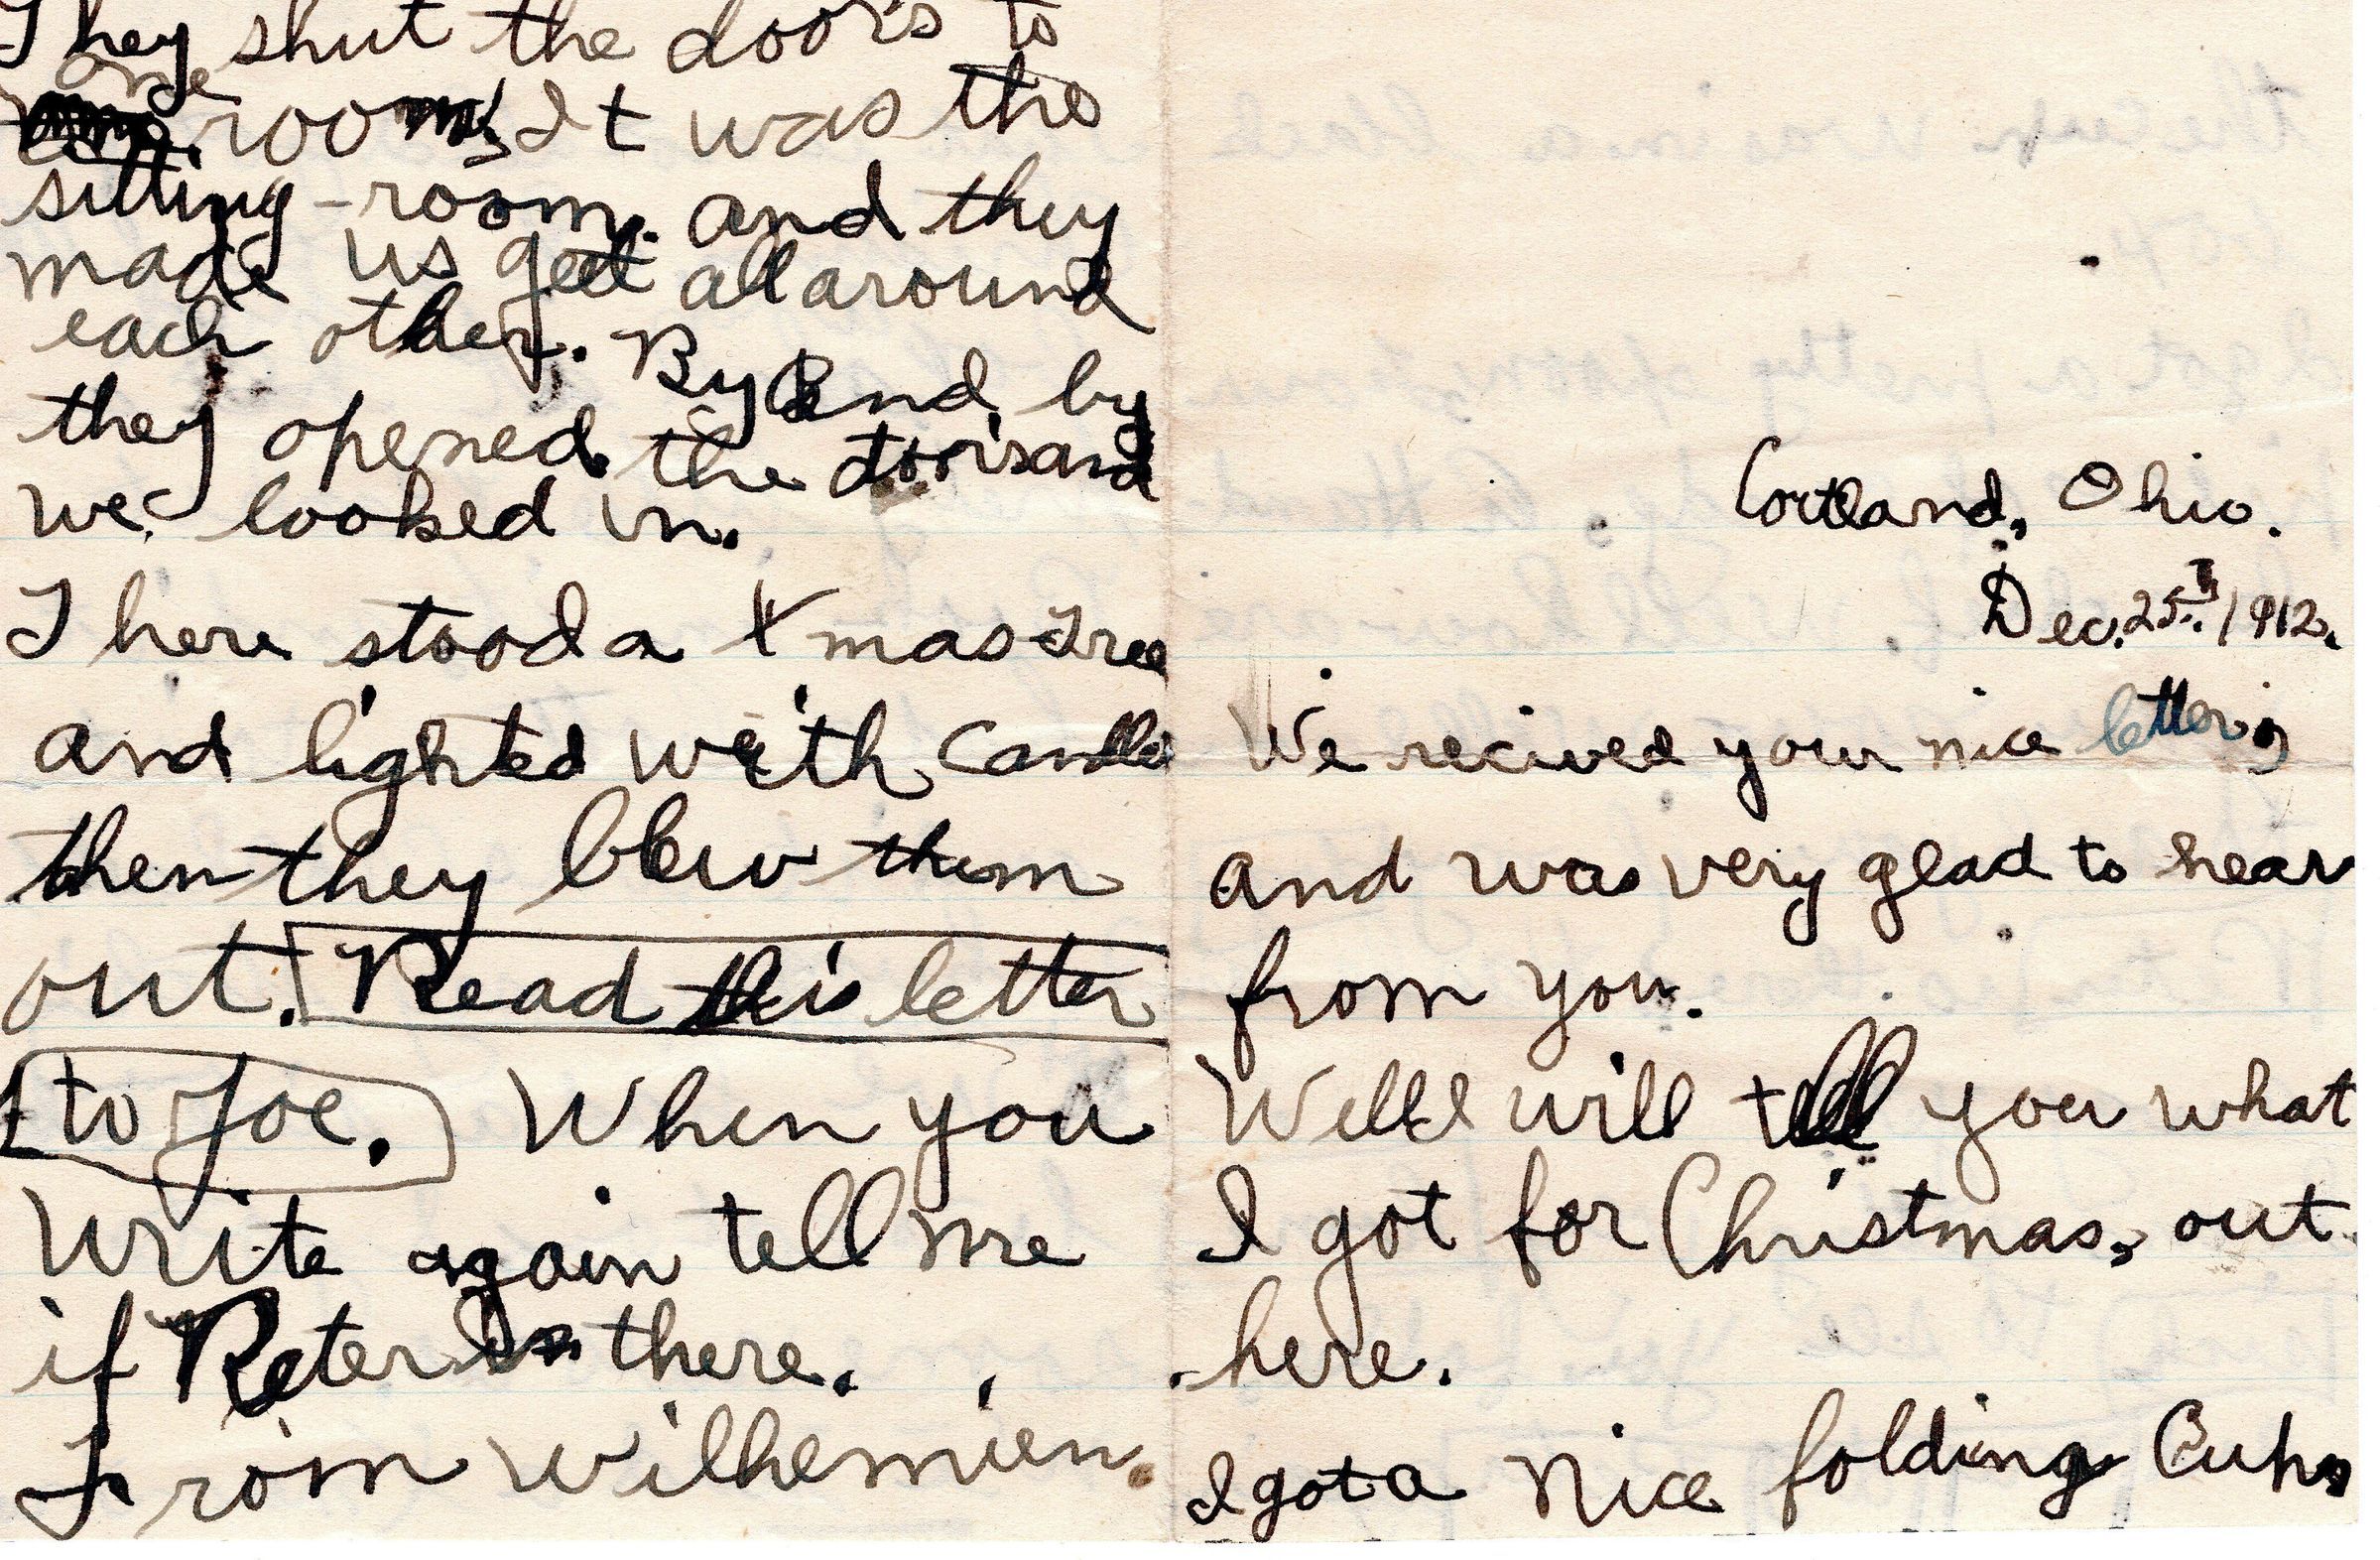 Cortland, Ohio.
Dec. 25th. 1912.
We recived your nice letter,
and was very glad to hear
from you.
Well I will tell you what
I got for Christmas, out
here.
I got a nice folding Cup,
They shut the doors to
one room. It was the
sitting-room. and they
made us get all around
each other. By and by
they opened the doors and
we looked in.
There stood a Xmas Tree
and lighted with candles
then they blew them
out. Read this letter
to Joe. When you
write again tell me
if Peter is there.
From Wilhemien.